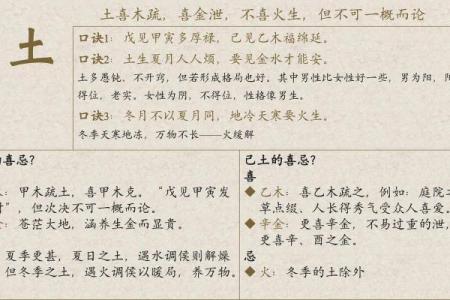 土
土喜木疏，喜金泄，不喜火生，但不可一概而论
口诀1：戊见甲寅多厚禄，己见乙木福绵延。
口诀2：土生夏月人人烦，要见金水才能安。
土多愚钝、不开窍，但若形成格局也好。其中男性比女性好一些，男为阳，阳
得位，老实。女性为阴，不得位，性格像男生。
口诀3：冬月不以夏月同，地冷天寒要火生。
冬季天寒地冻，万物不长——火缓解
的喜忌？
甲木疏土，喜甲木克。“戊见甲寅发
，但次决不可一概而论。
苍茫大地，涵养生金而显贵。
夏季更甚，夏日之土，遇水调侯则解燥
但冬季之土，遇火调侯以暖局，养万物。
己土的喜忌？
喜
乙木：喜乙木疏之，例如：庭院之
草点缀、人长得秀气受众人喜爱。
辛金：更喜辛金，不易过重的泄，
更喜辛、酉之金。
忌
火：冬季的土除外